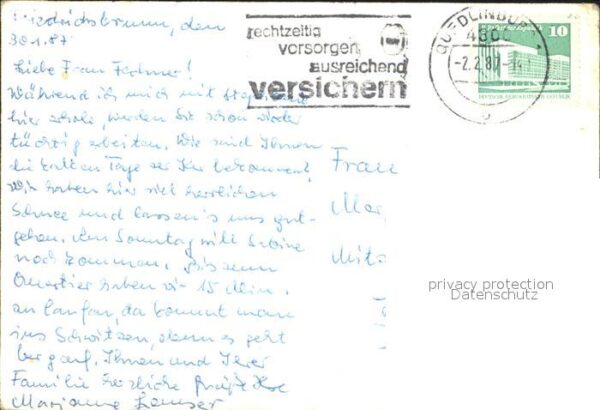 Friedrichsbrunn, den
30.1.87
Liebe Frau Fechner!
Während ich mich mit
hier erhole, werden Sie schon wieder
tüchtig arbeiten. Wie sind Ihnen
die kalten Tage der Kur bekommen?
Wir haben hier viel herrlichen
Schnee und lassen's uns gut-
gehen. Am Sonntag will Sabine
noch kommen. Bis zum
Quartier haben wir 15 Min.
zu laufen, da kommt man
ins Schwitzen, denn es geht
bergauf. Ihnen und Ihrer
Familie herzliche Grüße Ihre
Marianne
rechtzeitig
vorsorgen,
ausreichend
versichern
QUEDLINBURG 1
4300
-2.2.87
10
DEUTSCHE DEMOKRATISCHE REPUBLIK
Frau
Mar
Mitt
privacy protection
Datenschutz